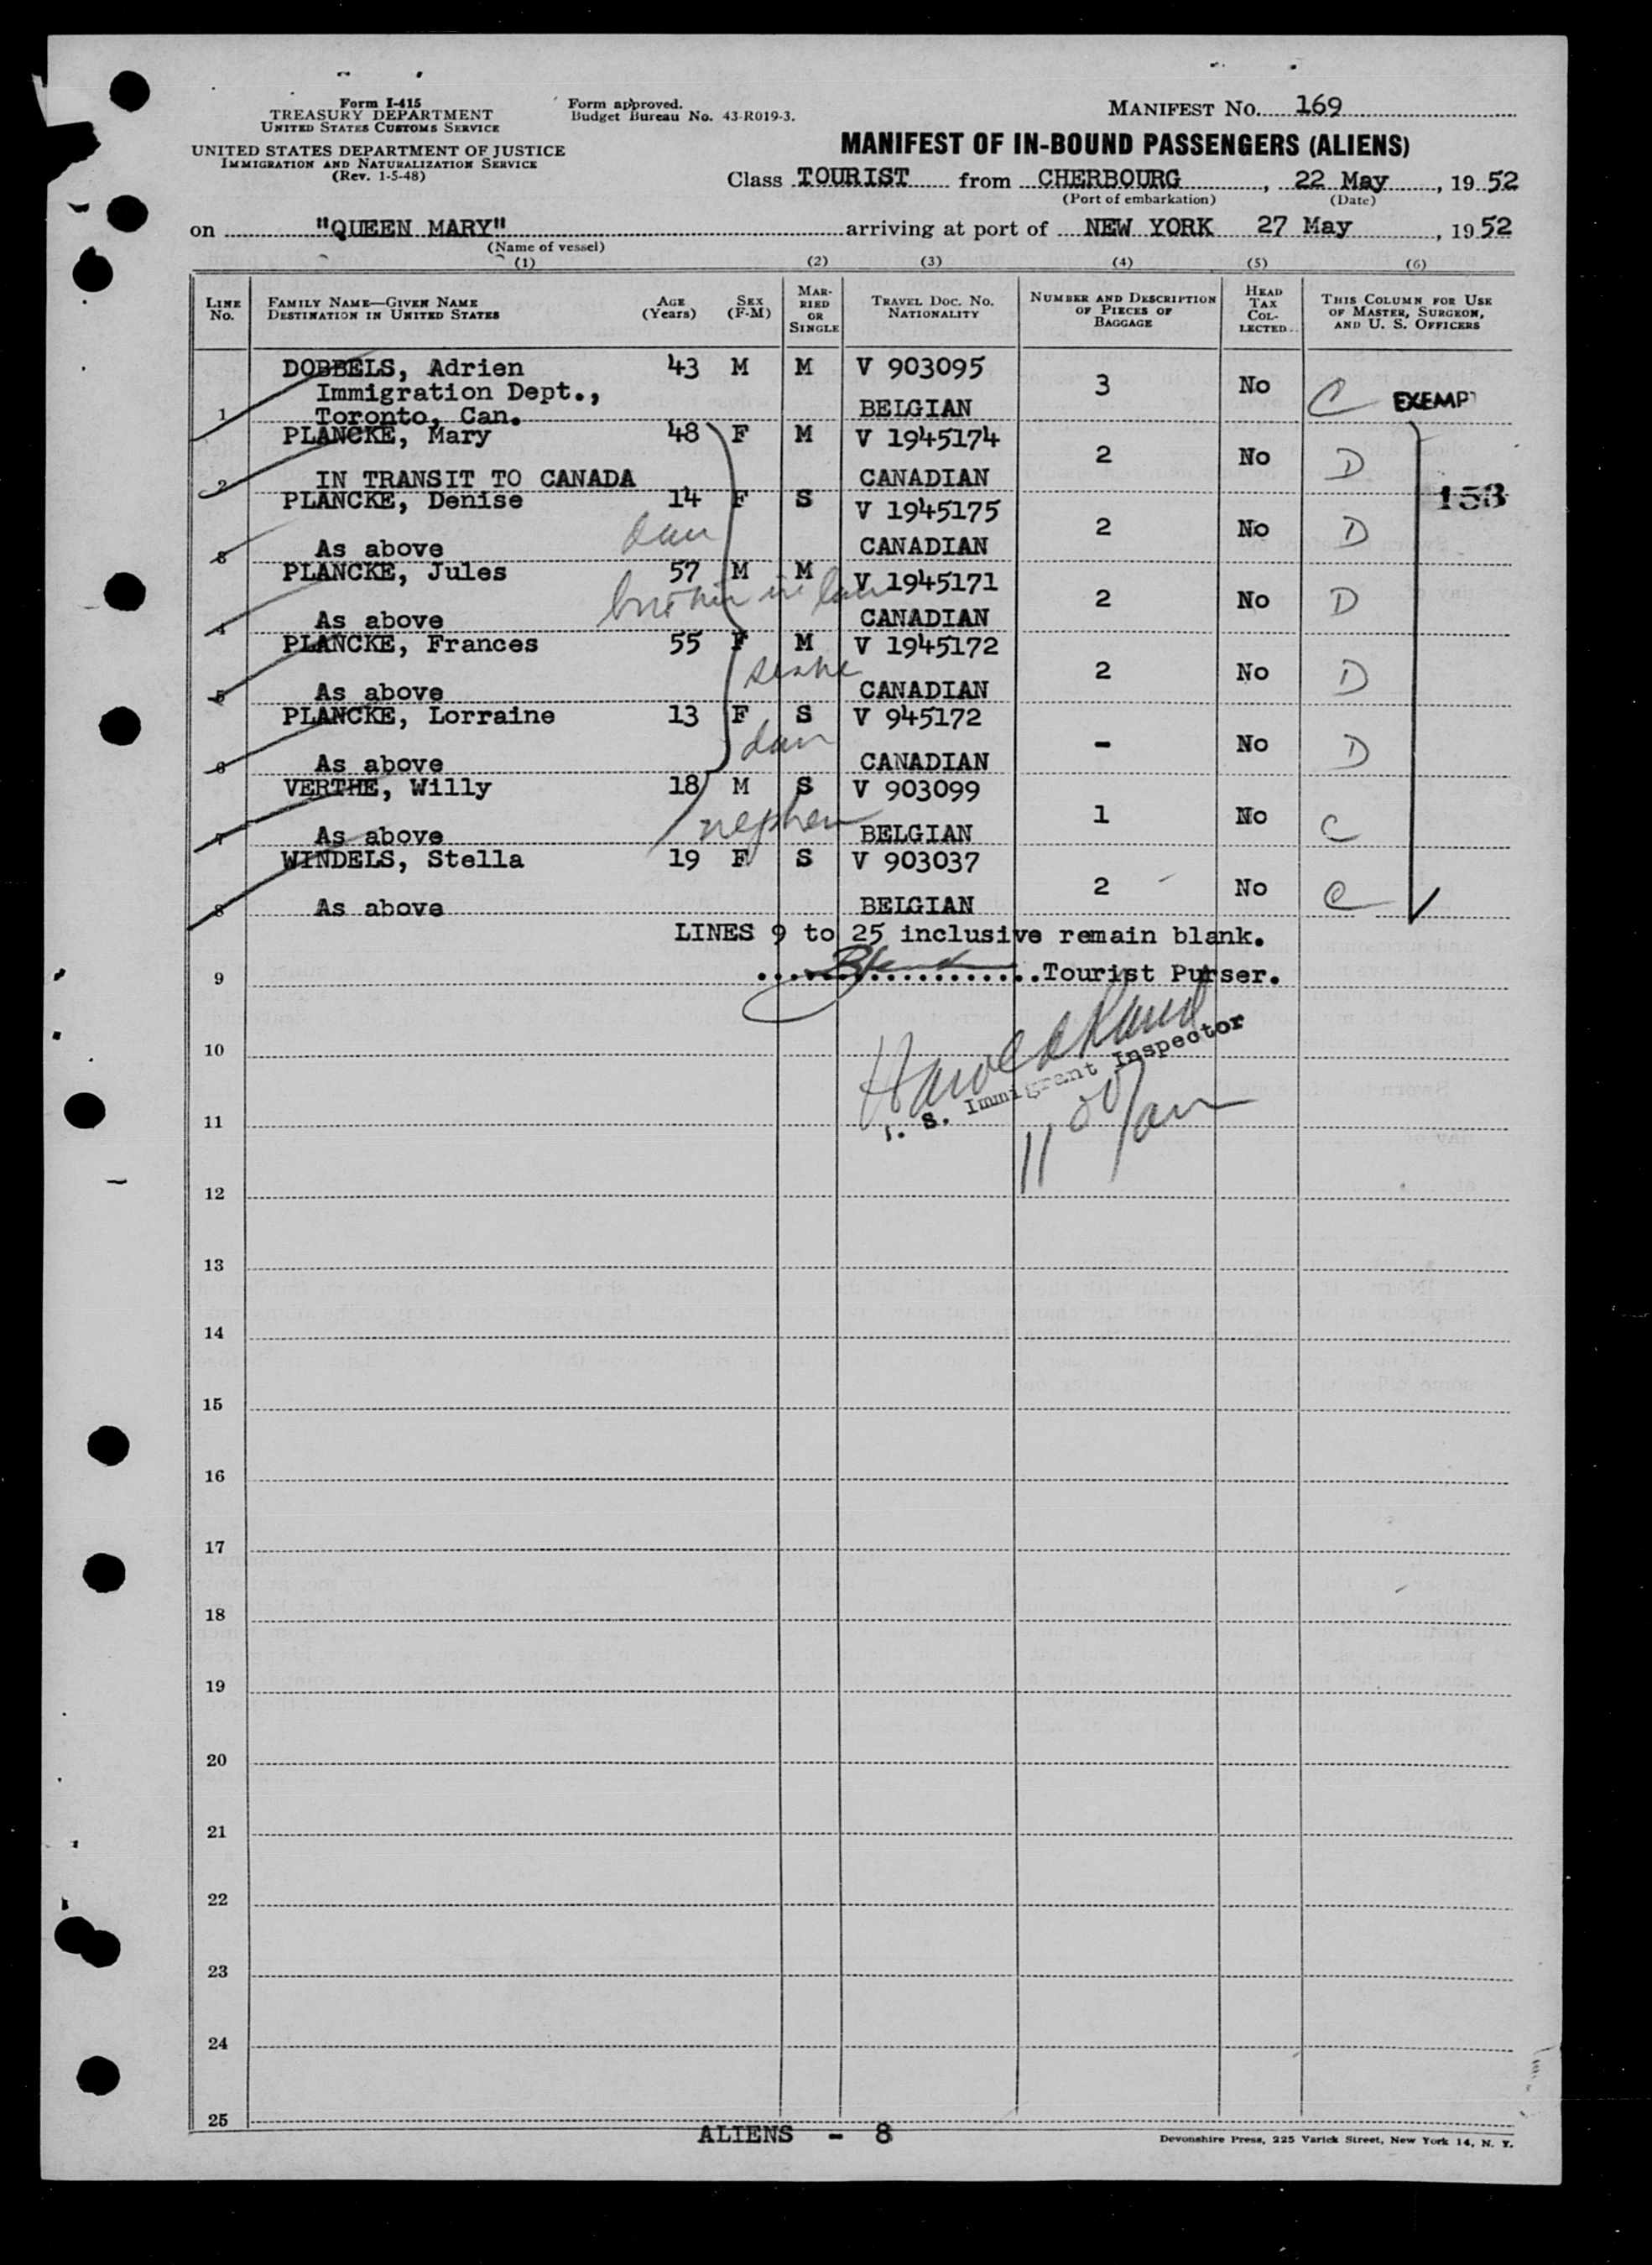 Form I-415
TREASURY DEPARTMENT
UNITED STATES CUSTOMS SERVICE
UNITED STATES DEPARTMENT OF JUSTICE
IMMIGRATION AND NATURALIZATION SERVICE
(Rev. 1-5-48)
Form approved.
Budget Bureau No. 43-R019-3.
MANIFEST No. 169
MANIFEST OF IN-BOUND PASSENGERS (ALIENS)
Class TOURIST from CHERBOURG, 22 May, 1952
(Port of embarkation) (Date)
on "QUEEN MARY" arriving at port of NEW YORK 27 May, 1952
(Name of vessel)
(1) (2) (3) (4) (5) (6)
LINE No. FAMILY NAME—GIVEN NAME DESTINATION IN UNITED STATES AGE (Years) SEX (F-M) MARRIED OR SINGLE TRAVEL DOC. No. NATIONALITY NUMBER AND DESCRIPTION OF PIECES OF BAGGAGE HEAD TAX COLLECTED THIS COLUMN FOR USE OF MASTER, SURGEON, AND U. S. OFFICERS
DOBBELS, Adrien 43 M M V 903095
Immigration Dept., 3 No C EXEMPT
1 Toronto, Can. BELGIAN
PLANCKE, Mary 48 F M V 1945174
2 No D
2 IN TRANSIT TO CANADA CANADIAN
153
PLANCKE, Denise 14 F S V 1945175
dau 2 No D
3 As above CANADIAN
PLANCKE, Jules 57 M M V 1945171
brother in law 2 No D
4 As above CANADIAN
PLANCKE, Frances 55 F M V 1945172
2 No D
5 As above CANADIAN
PLANCKE, Lorraine 13 F S V 945172
dau - No D
6 As above CANADIAN
VERTHE, Willy 18 M S V 903099
nephew 1 No C
7 As above BELGIAN
WINDELS, Stella 19 F S V 903037
2 No C
8 As above BELGIAN
LINES 9 to 25 inclusive remain blank.
9 Tourist Purser.
10
. S. Immigrant Inspector
11
11 00/am
12
13
14
15
16
17
18
19
20
21
22
23
24
25
ALIENS - 8
Devonshire Press, 225 Varick Street, New York 14, N. Y.